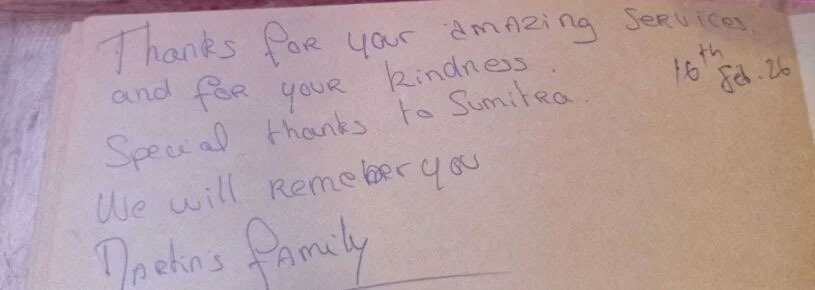 Thanks for your amazing services.
and for your kindness.
16th Feb. 26
Special thanks to Sumitra.
We will remeber you
Martins family